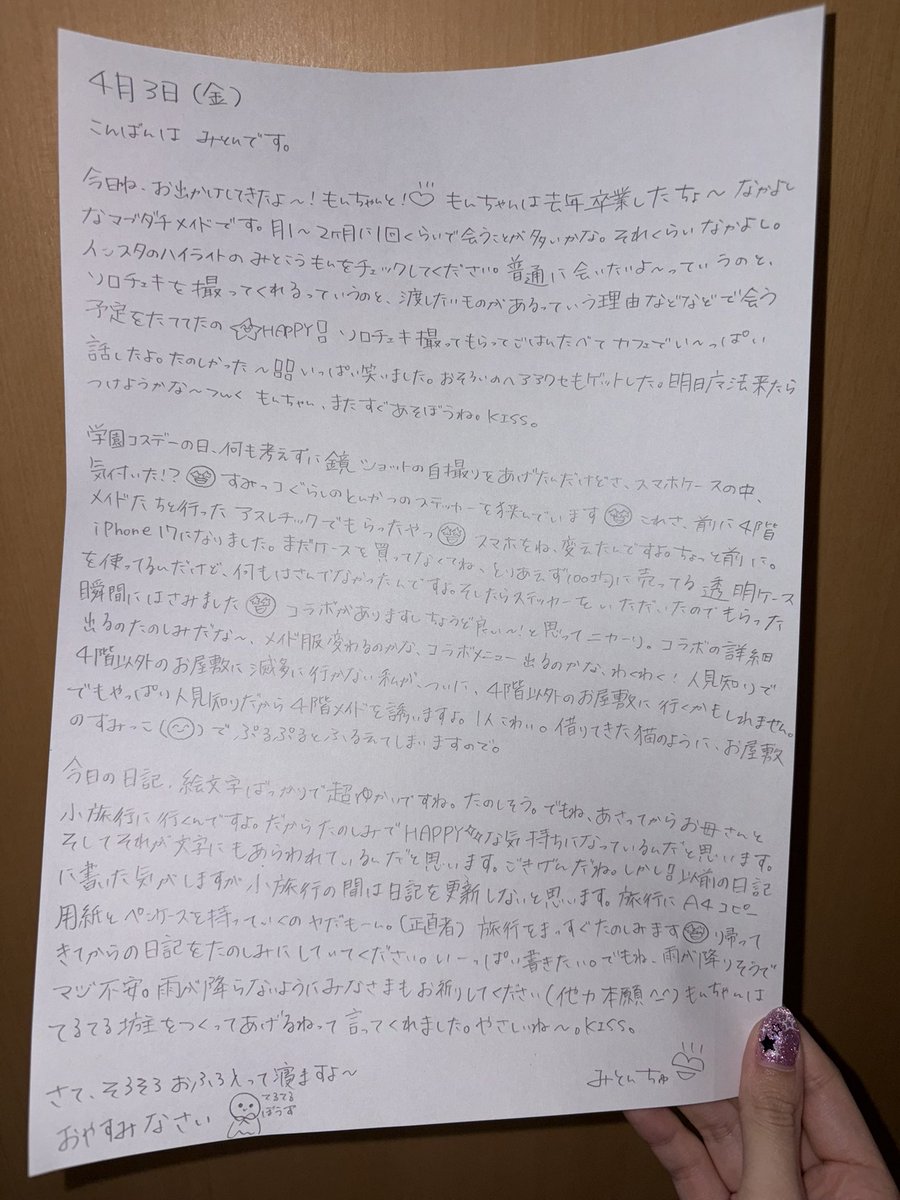 4月3日(金)
こんばんは みとんです。
今日ね、お出かけしてきたよ〜!もぃちゃんと! もぃちゃんは去年卒業したちょ〜なかよし
なマブダチメイドです。月1〜2ヶ月に1回くらいで会うことが多いかな。それくらいなかよし。
インスタのハイライトの みとこうもぃをチェックしてください。普通に会いたいよ〜っていうのと、
ソロチェキを撮ってくれるっていうのと、渡したいものがあるっていう理由などなどで会う
予定をたててたの HAPPY!! ソロチェキ撮ってもらってごはんたべてカフェでい〜っぱい
話したよ。たのしかった〜!!!! いっぱい笑いました。おそろいのヘアアクセもゲットした。明日魔法来たら
つけようかな〜 もぃちゃん、またすぐあそぼうね。KISS。
学園コスデーの日、何も考えずに鏡ショットの自撮りをあげたんだけどさ、スマホケースの中、
気付いた!? すみっコぐらしのとんかつのステッカーを挟んでいます これさ、前に4階
メイドたちと行ったアスレチックでもらったやつ スマホをね、変えたんですよ。ちょっと前に。
iPhone17になりました。まだケースを買ってなくてね、とりあえず100均に売ってる透明ケース
を使ってるんだけど、何もはさんでなかったんですよ。そしたらステッカーをいただいたのでもらった
瞬間にはさみました コラボがありますしちょうど良い〜!と思ってニヤーリ。コラボの詳細
出るのたのしみだな〜、メイド服変わるのかな、コラボメニュー出るのかな、わくわく!人見知りで
4階以外のお屋敷に滅多に行かない私が、ついに、4階以外のお屋敷に行くかもしれません。
でもやっぱり人見知りだから4階メイドを誘いますよ。1人こわい。借りてきた猫のように、お屋敷
のすみっこ( )でぷるぷるとふるえてしまいますので。
今日の日記、絵文字ばっかりで超ゆかいですね。たのしそう。でもね、あさってからお母さんと
小旅行に行くんですよ。だからたのしみでHAPPYな気持ちになっているんだと思います。
そしてそれが文字にもあらわれているんだと思います。ごきげんだね。しかし!!以前の日記
に書いた気がしますが小旅行の間は日記を更新しないと思います。旅行にA4コピー
用紙とペンケースを持っていくのやだもーん。(正直者) 旅行をまっすぐたのしみます 帰って
きてからの日記をたのしみにしていてください。い〜っぱい書きたい。でもね、雨が降りそうで
マジ不安。雨が降らないようにみなさまもお祈りしてください(他力本願^^)もぃちゃんは
てるてる坊主をつくってあげるねって言ってくれました。やさしいね〜。KISS。
さて、そろそろおふろ入って寝ますよ〜
みとんちゅ
おやすみなさい
てるてる
ぼうず